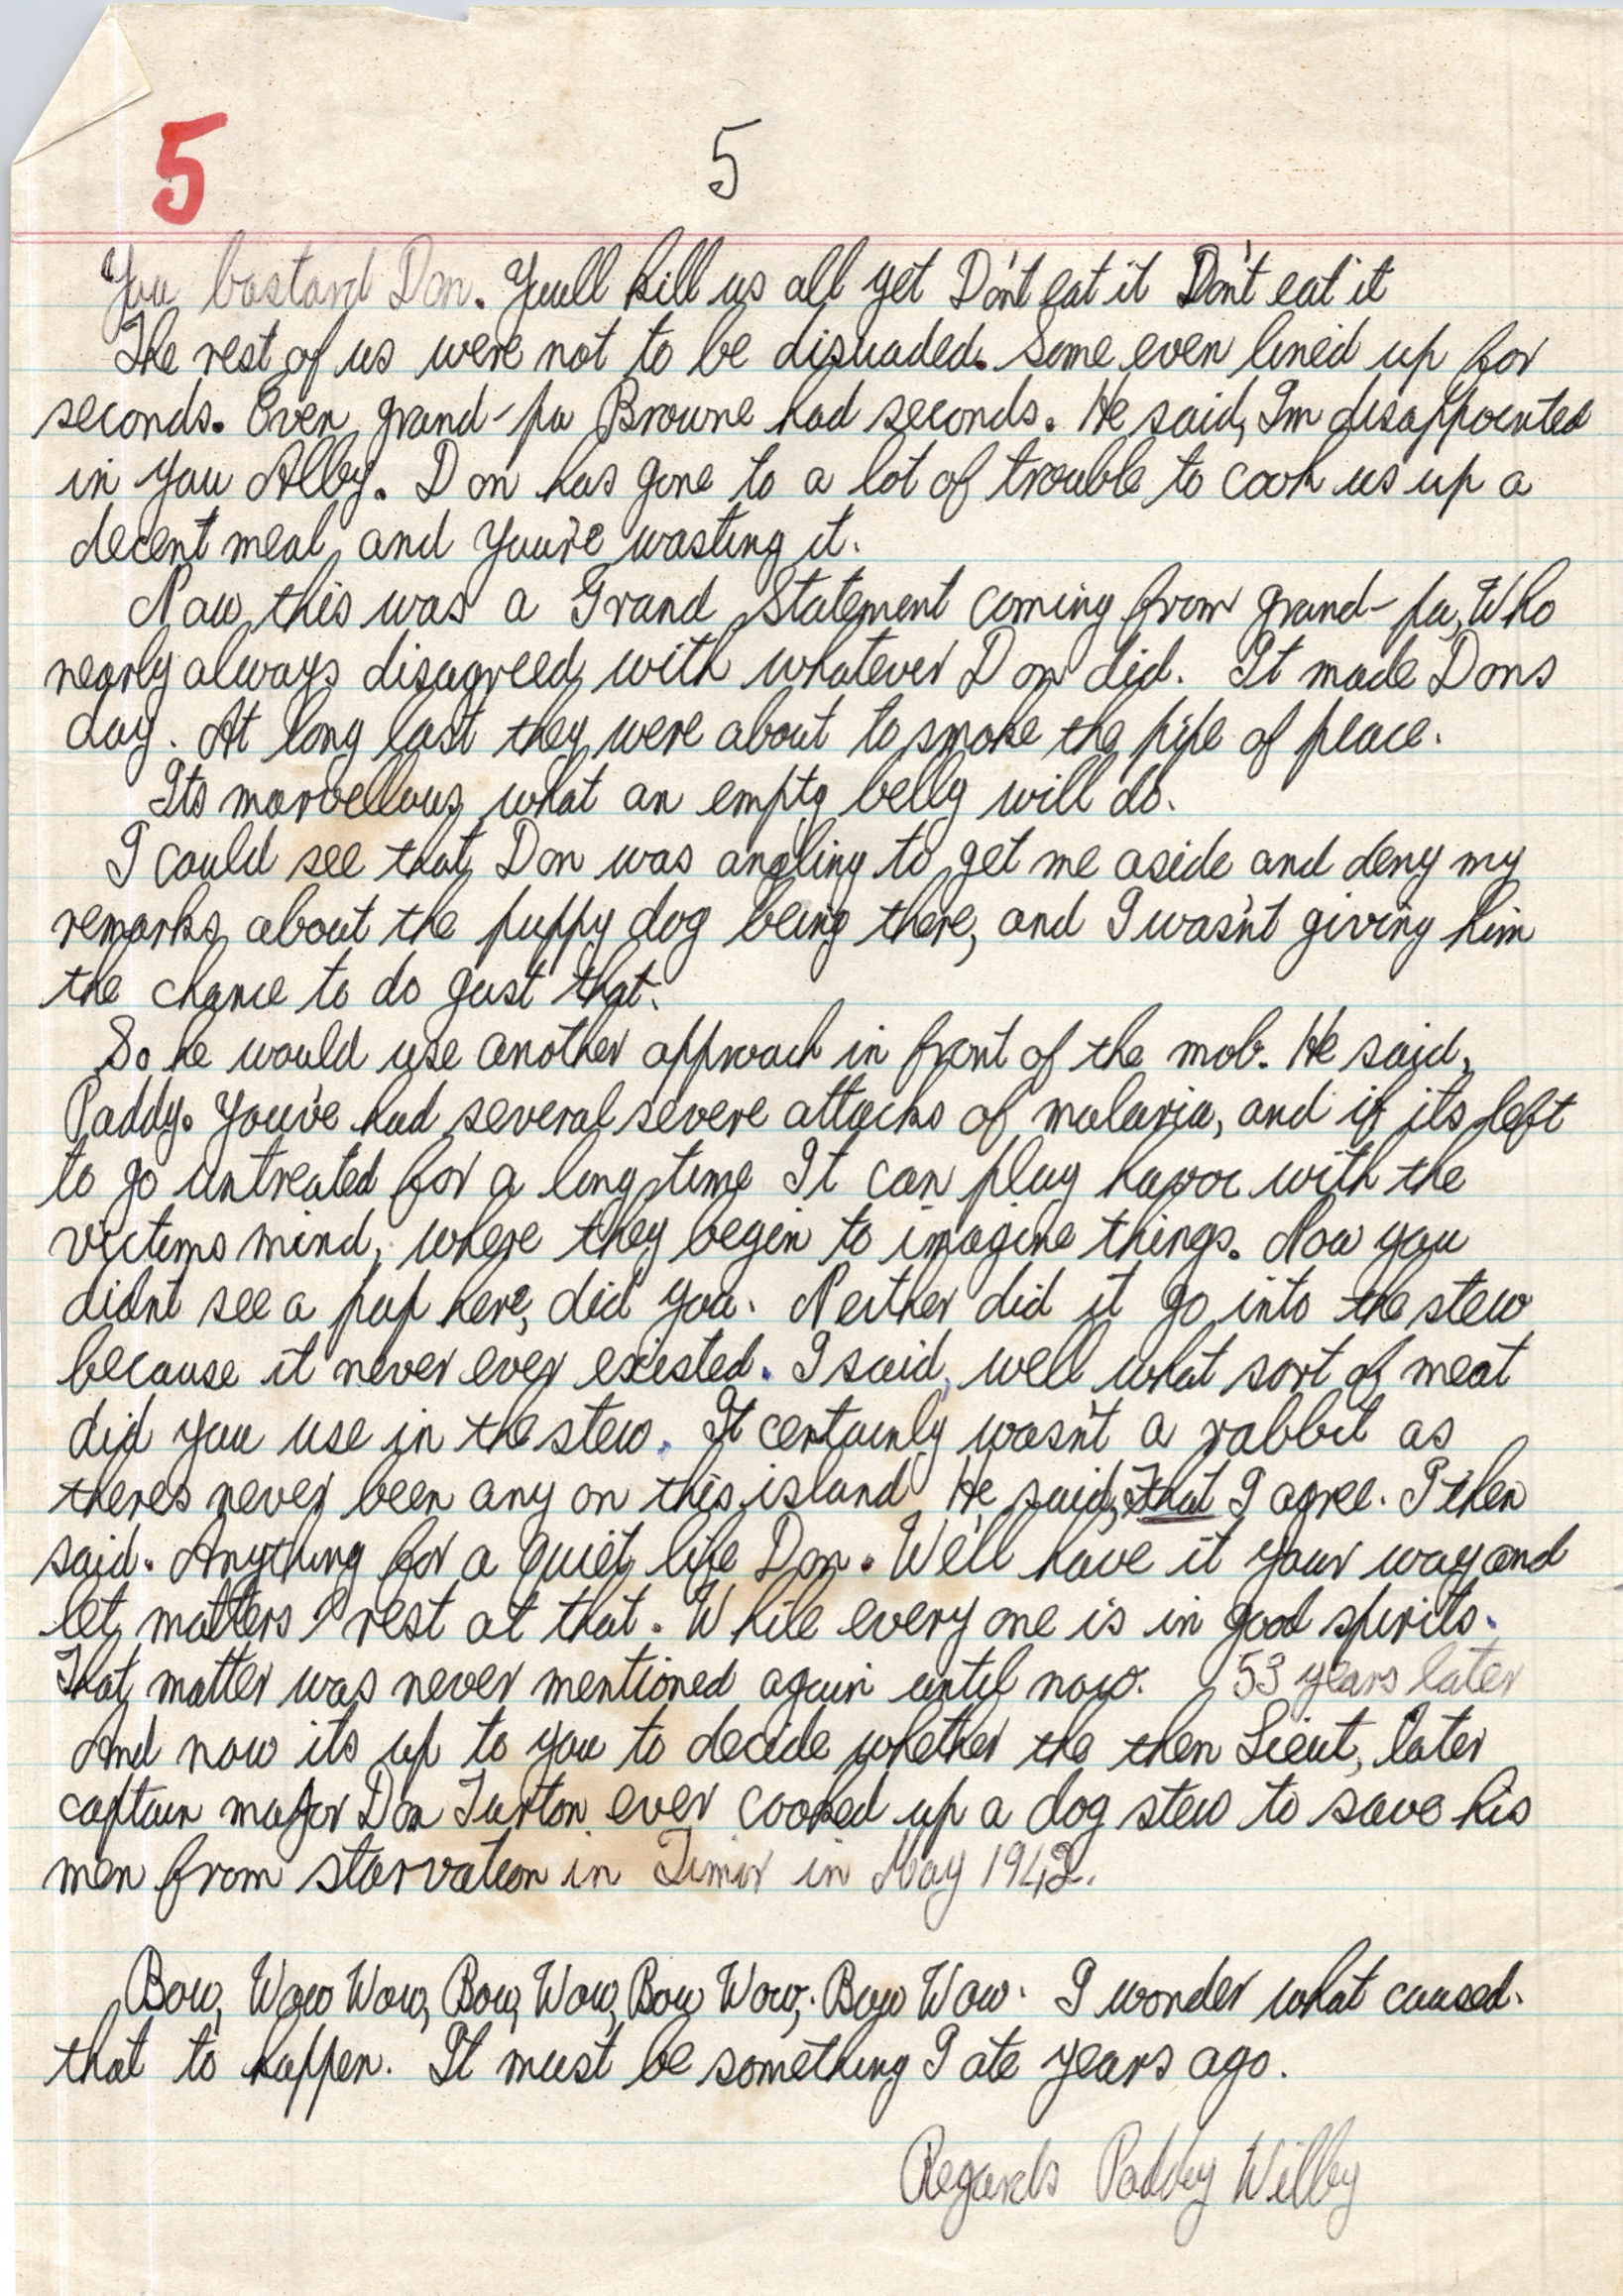 5
5
You bastard Don. Youll kill us all yet Don't eat it Don't eat it
The rest of us were not to be disuaded. Some even lined up for
seconds. Even grand-pa Browne had seconds. He said, Im disappointed
in you Alby. Don has gone to a lot of trouble to cook us up a
decent meal, and you're wasting it.
Now this was a Grand Statement coming from grand-pa, Who
nearly always disagreed with whatever Don did. It made Dons
day. At long last they were about to smoke the pipe of peace.
Its marvellous what an empty belly will do.
I could see that Don was angling to get me aside and deny my
remarks about the puppy dog being there, and I wasn't giving him
the chance to do just that.
So he would use another approach in front of the mob. He said,
Paddy. You've had several severe attacks of malaria, and if its left
to go untreated for a long time It can play havoc with the
victims mind, where they begin to imagine things. Now you
didnt see a pup here, did you. Neither did it go into the stew
because it never ever existed. I said, well what sort of meat
did you use in the stew. It certainly wasn't a rabbit as
theres never been any on this island He said, that I agree. I then
said. Anything for a quiet life Don. We'll have it your way and
let matters rest at that. While every one is in good spirits.
That matter was never mentioned again until now. 53 years later
And now its up to you to decide whether the then Lieut, later
captain major Don Turton ever cooked up a dog stew to save his
men from starvation in Timor in May 1942.
Bow, Wow Wow, Bow, Wow, Bow Wow, Bow Wow. I wonder what caused.
that to happen. It must be something I ate years ago.
Regards Paddy Wilby